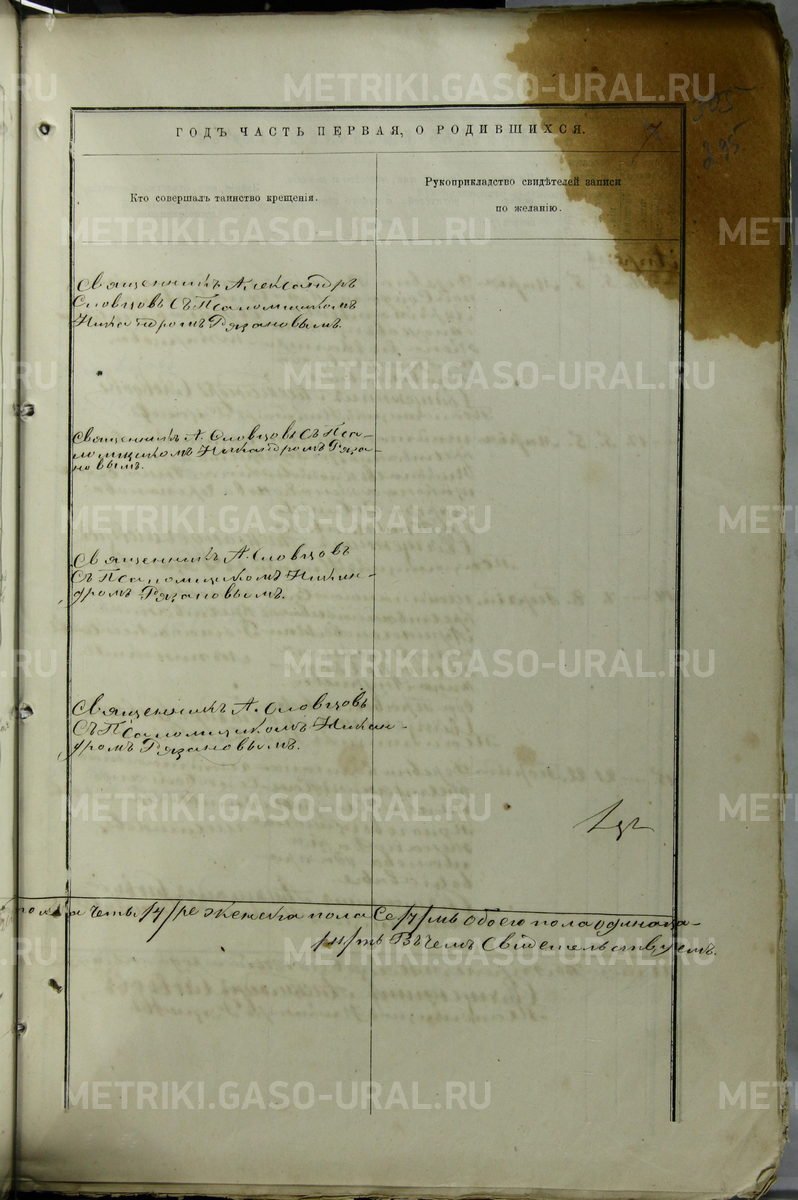 295
ГОДЪ ЧАСТЬ ПЕРВАЯ, О РОДИВШИХСЯ.
7
Кто совершалъ таинство крещенія.
Рукоприкладство свидѣтелей записи
по желанію.
Священникъ Александръ
Словцовъ съ Псаломщикомъ
Никандромъ Рязановымъ.
Священникъ А. Словцовъ съ Пса-
ломщикомъ Никандромъ Ряза-
новымъ.
Священникъ А. Словцовъ
съ Псаломщикомъ Никан-
дромъ Рязановымъ.
Священникъ А. Словцовъ
съ Псаломщикомъ Никан-
дромъ Рязановымъ.
пола четы /4/ ре женска пола Се /7/ мь обоего пола одинаца-
/11/ ть Въ чемъ Свидетельствуемъ.
METRIKI.GASO-URAL.RU